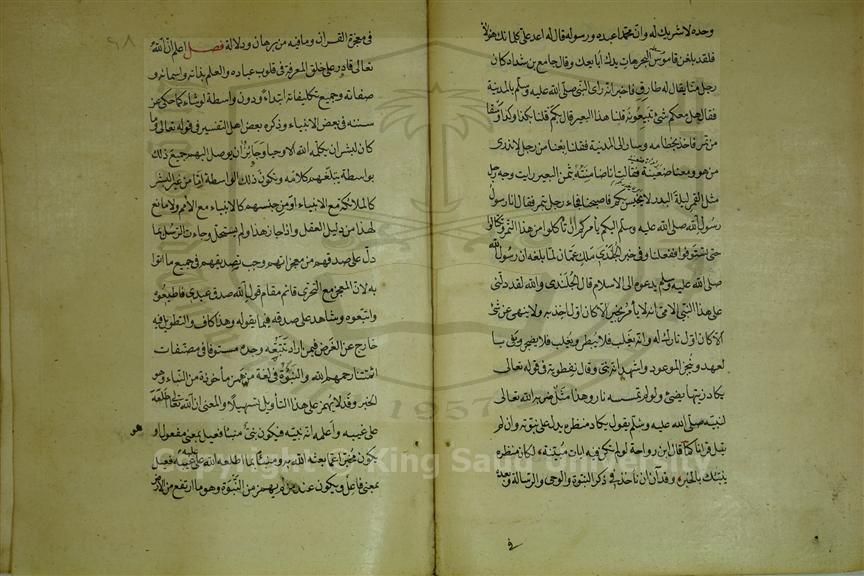 وحده لا شريك له وان محمدا عبده ورسوله قال له اعد علي كلماتك هؤلاء
فلقد بلغن قاموس البحر هات يدك أبايعك وقال جامع بن شداد كان
رجل منا يقال له طارق فاخبر انه رأى النبي صلى الله عليه وسلم بالمدينة
فقال هل معكم شئ تبيعونه قلنا هذا البعير قال بكم قلنا بكذا وكذا وسقا
من تمر فاخذ بخطامه وسار الى المدينة فقلنا بعنا من رجل لا ندري
من هو ومعنا ضعينة فقالت انا ضامنة ثمن البعير رايت وجه رجل
مثل القمر ليلة البدر لا يخيس بكم فاصبحنا فجاء رجل بتمر فقال انا رسول
رسول الله صلى الله عليه وسلم اليكم يامركم ان تأكلوا من هذا التمر وتكتالوا
حتى تستوفوا ففعلنا وفي خبر الجلندى ملك عمان لما بلغه ان رسول الله
صلى الله عليه وسلم يدعوه الى الاسلام قال الجلندى والله لقد دلني
على هذا النبي الامي انه لا يأمر بخير الا كان اول آخذ به ولا ينهى عن شئ
الا كان اول تارك له وانه يغلب فلا يبطر ويغلب فلا يضجر ويفي بـا
لعهد وينجز الموعود واشهد انه نبي وقال نفطويه في قوله تعالى
يكاد زيتها يضئ ولو لم تمسسه نار وهذا مثل ضربه الله تعالى
لنبيه صلى الله عليه وسلم يقول يكاد منظره يدل على نبوته وان لم
يتل قرانا كما قال ابن رواحة لو لم تكن فيه ايات مبينة لكان منظره
ينبئك بالخبر وقد آن ان نأخذ في ذكر النبوة والوحي والرسالة وبعده
في
٦٨
في معجزة القرآن وما فيه من برهان ودلالة فصل اعلم ان الله
تعالى قادر على خلق المعرفة في قلوب عباده والعلم بذاته واسمائه و
صفاته وجميع تكليفاته ابتداء دون واسطة لو شاء كما حكي عن
سنته في بعض الانبياء وذكره بعض اهل التفسير في قوله تعالى وما
كان لبشر ان يكلمه الله الا وحيا وجائز ان يوصل اليهم جميع ذلك
بواسطة يبلغهم كلامه وتكون ذلك الواسطة اما من غير البشر
كالملائكة مع الانبياء او من جنسهم كالانبياء مع الامم ولا مانع
لهذا من دليل العقل واذا جاز هذا ولم يستحل وجاءت الرسل بما
دل على صدقهم من معجزاتهم وجب تصديقهم في جميع ما اتوا
به لان المعجز مع التحدي قائم مقام قول الله صدق عبدي فاطيعوه
واتبعوه وشاهد على صدقه فيما يقوله وهذا كاف والتطويل فيه
خارج عن الغرض فمن اراد تتبعه وجده مستوفا في مصنفات
ائمتنا رحمهم الله والنبوة في لغة من همز مأخوذة من النبأ وهو
الخبر وقد لا يهمز على هذا التأويل تسهيلا والمعنى ان الله تعالى اطلعه
على غيبه واعلمه انه نبيه فيكون نبي منبئا فعيل بمعنى مفعول او
يكون مخبرا عما بعثه الله به ومنبئا بما اطلعه الله عليه فعيل
بمعنى فاعل ويكون عند من لم يهمز من النبوة وهو ما ارتفع من الارض
Copyright © King Saud University
1957